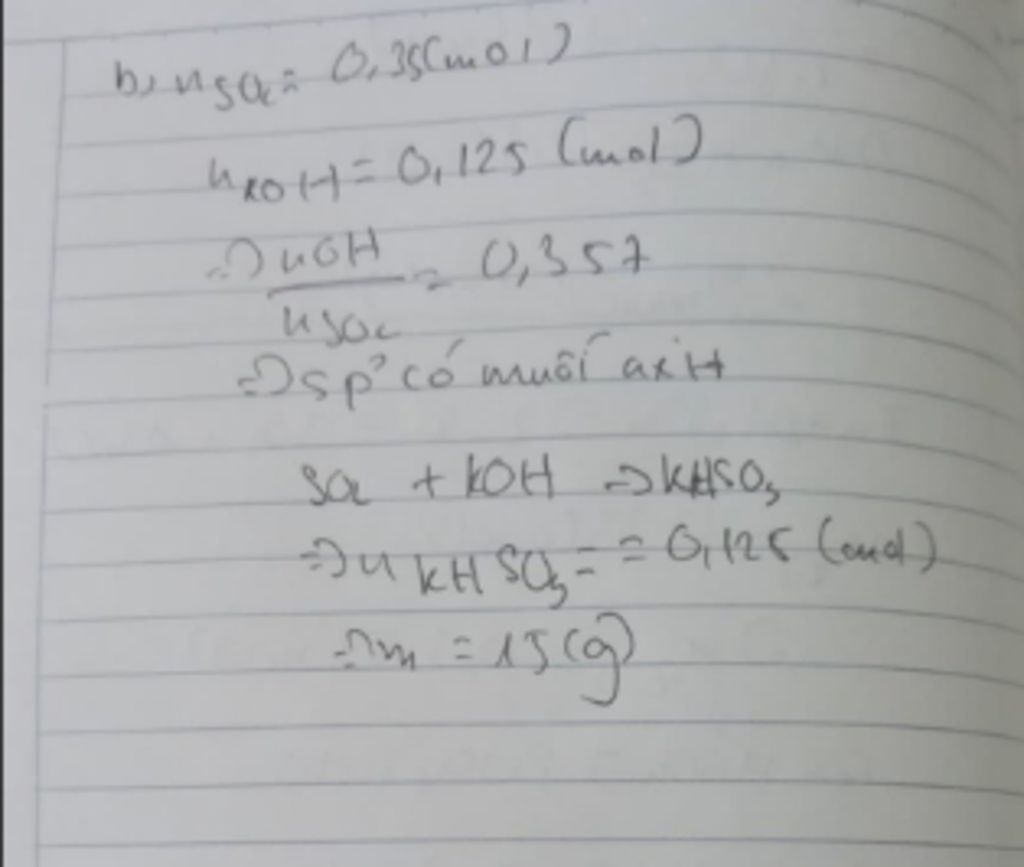 b, nSO2 = 0,35(mol)
nKOH = 0,125 (mol)
=> nOH / nSO2 = 0,357
=> sp' có muối axit
SO2 + KOH => KHSO3
=> n KHSO3 = = 0,125 (mol)
=> m = 15 (g)